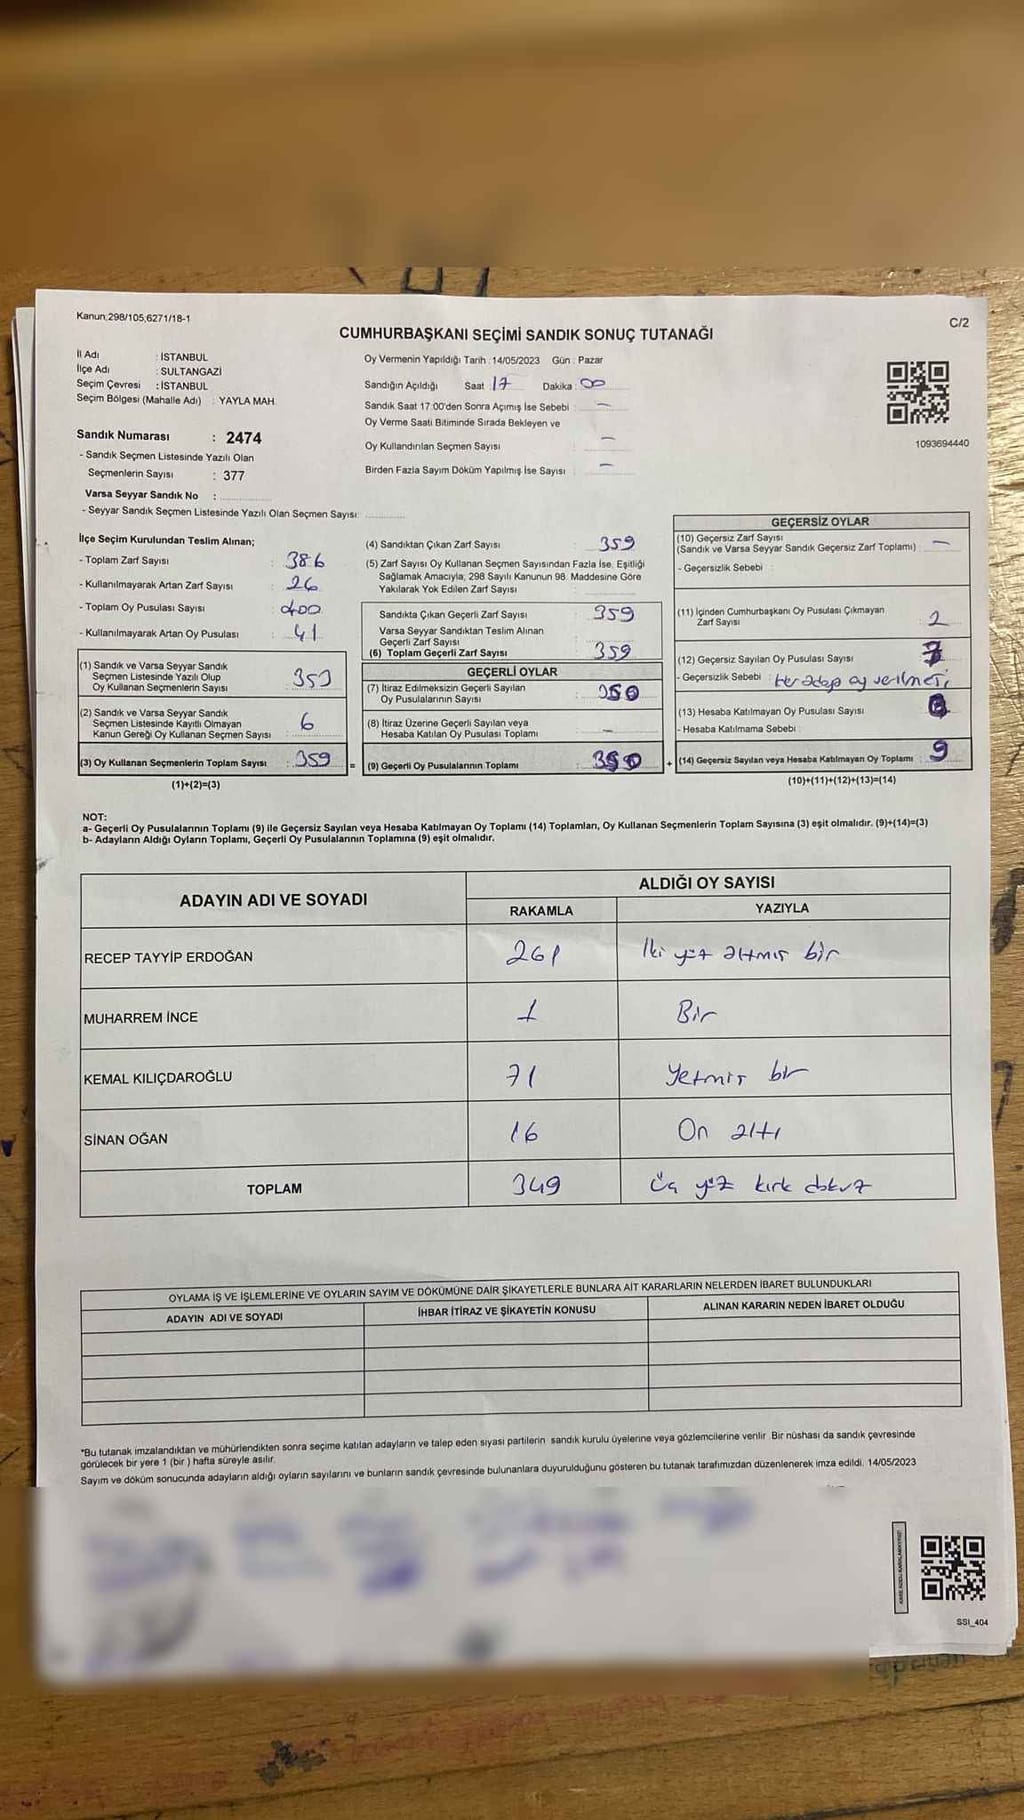 Kanun;298/105,6271/18-1
C/2
CUMHURBAŞKANI SEÇİMİ SANDIK SONUÇ TUTANAĞI
İl Adı : İSTANBUL
İlçe Adı : SULTANGAZİ
Seçim Çevresi : İSTANBUL
Seçim Bölgesi (Mahalle Adı) : YAYLA MAH.
Sandık Numarası : 2474
- Sandık Seçmen Listesinde Yazılı Olan
Seçmenlerin Sayısı : 377
Varsa Seyyar Sandık No :
- Seyyar Sandık Seçmen Listesinde Yazılı Olan Seçmen Sayısı:
Oy Vermenin Yapıldığı Tarih : 14/05/2023 Gün : Pazar
Sandığın Açıldığı Saat 17 Dakika : 00
Sandık Saat 17:00'den Sonra Açımış İse Sebebi : —
Oy Verme Saati Bitiminde Sırada Bekleyen ve
Oy Kullandırılan Seçmen Sayısı —
Birden Fazla Sayım Döküm Yapılmış İse Sayısı : —
1093694440
İlçe Seçim Kurulundan Teslim Alınan;
- Toplam Zarf Sayısı : 386
- Kullanılmayarak Artan Zarf Sayısı : 26
- Toplam Oy Pusulası Sayısı : 400
- Kullanılmayarak Artan Oy Pusulası : 41
(1) Sandık ve Varsa Seyyar Sandık
Seçmen Listesinde Yazılı Olup
Oy Kullanan Seçmenlerin Sayısı 353
(2) Sandık ve Varsa Seyyar Sandık
Seçmen Listesinde Kayıtlı Olmayan
Kanun Gereği Oy Kullanan Seçmen Sayısı 6
(3) Oy Kullanan Seçmenlerin Toplam Sayısı : 359
(1)+(2)=(3)
(4) Sandıktan Çıkan Zarf Sayısı : 359
(5) Zarf Sayısı Oy Kullanan Seçmen Sayısından Fazla İse, Eşitliği
Sağlamak Amacıyla, 298 Sayılı Kanunun 98. Maddesine Göre
Yakılarak Yok Edilen Zarf Sayısı
Sandıkta Çıkan Geçerli Zarf Sayısı : 359
Varsa Seyyar Sandıktan Teslim Alınan
Geçerli Zarf Sayısı
(6) Toplam Geçerli Zarf Sayısı : 359
GEÇERLİ OYLAR
(7) İtiraz Edilmeksizin Geçerli Sayılan
Oy Pusulalarının Sayısı : 350
(8) İtiraz Üzerine Geçerli Sayılan veya
Hesaba Katılan Oy Pusulası Toplamı —
= (9) Geçerli Oy Pusulalarının Toplamı : 350
GEÇERSİZ OYLAR
(10) Geçersiz Zarf Sayısı
(Sandık ve Varsa Seyyar Sandık Geçersiz Zarf Toplamı) : —
- Geçersizlik Sebebi :
(11) İçinden Cumhurbaşkanı Oy Pusulası Çıkmayan
Zarf Sayısı : 2
(12) Geçersiz Sayılan Oy Pusulası Sayısı : 7
- Geçersizlik Sebebi : Her adaya oy verilmesi
(13) Hesaba Katılmayan Oy Pusulası Sayısı :
- Hesaba Katılmama Sebebi :
+ (14) Geçersiz Sayılan veya Hesaba Katılmayan Oy Toplamı : 9
(10)+(11)+(12)+(13)=(14)
NOT:
a- Geçerli Oy Pusulalarının Toplamı (9) ile Geçersiz Sayılan veya Hesaba Katılmayan Oy Toplamı (14) Toplamları, Oy Kullanan Seçmenlerin Toplam Sayısına (3) eşit olmalıdır. (9)+(14)=(3)
b- Adayların Aldığı Oyların Toplamı, Geçerli Oy Pusulalarının Toplamına (9) eşit olmalıdır.
ADAYIN ADI VE SOYADI ALDIĞI OY SAYISI
RAKAMLA YAZIYLA
RECEP TAYYİP ERDOĞAN 261 İki yüz altmış bir
MUHARREM İNCE 1 Bir
KEMAL KILIÇDAROĞLU 71 Yetmiş bir
SİNAN OĞAN 16 On altı
TOPLAM 349 Üç yüz kırk dokuz
OYLAMA İŞ VE İŞLEMLERİNE VE OYLARIN SAYIM VE DÖKÜMÜNE DAİR ŞİKAYETLERLE BUNLARA AİT KARARLARIN NELERDEN İBARET BULUNDUKLARI
ADAYIN ADI VE SOYADI İHBAR İTİRAZ VE ŞİKAYETİN KONUSU ALINAN KARARIN NEDEN İBARET OLDUĞU
*Bu tutanak imzalandıktan ve mühürlendikten sonra seçime katılan adayların ve talep eden siyasi partilerin sandık kurulu üyelerine veya gözlemcilerine verilir. Bir nüshası da sandık çevresinde
görülecek bir yere 1 (bir ) hafta süreyle asılır.
Sayım ve döküm sonucunda adayların aldığı oyların sayılarını ve bunların sandık çevresinde bulunanlara duyurulduğunu gösteren bu tutanak tarafımızdan düzenlenerek imza edildi. 14/05/2023
SSI_404